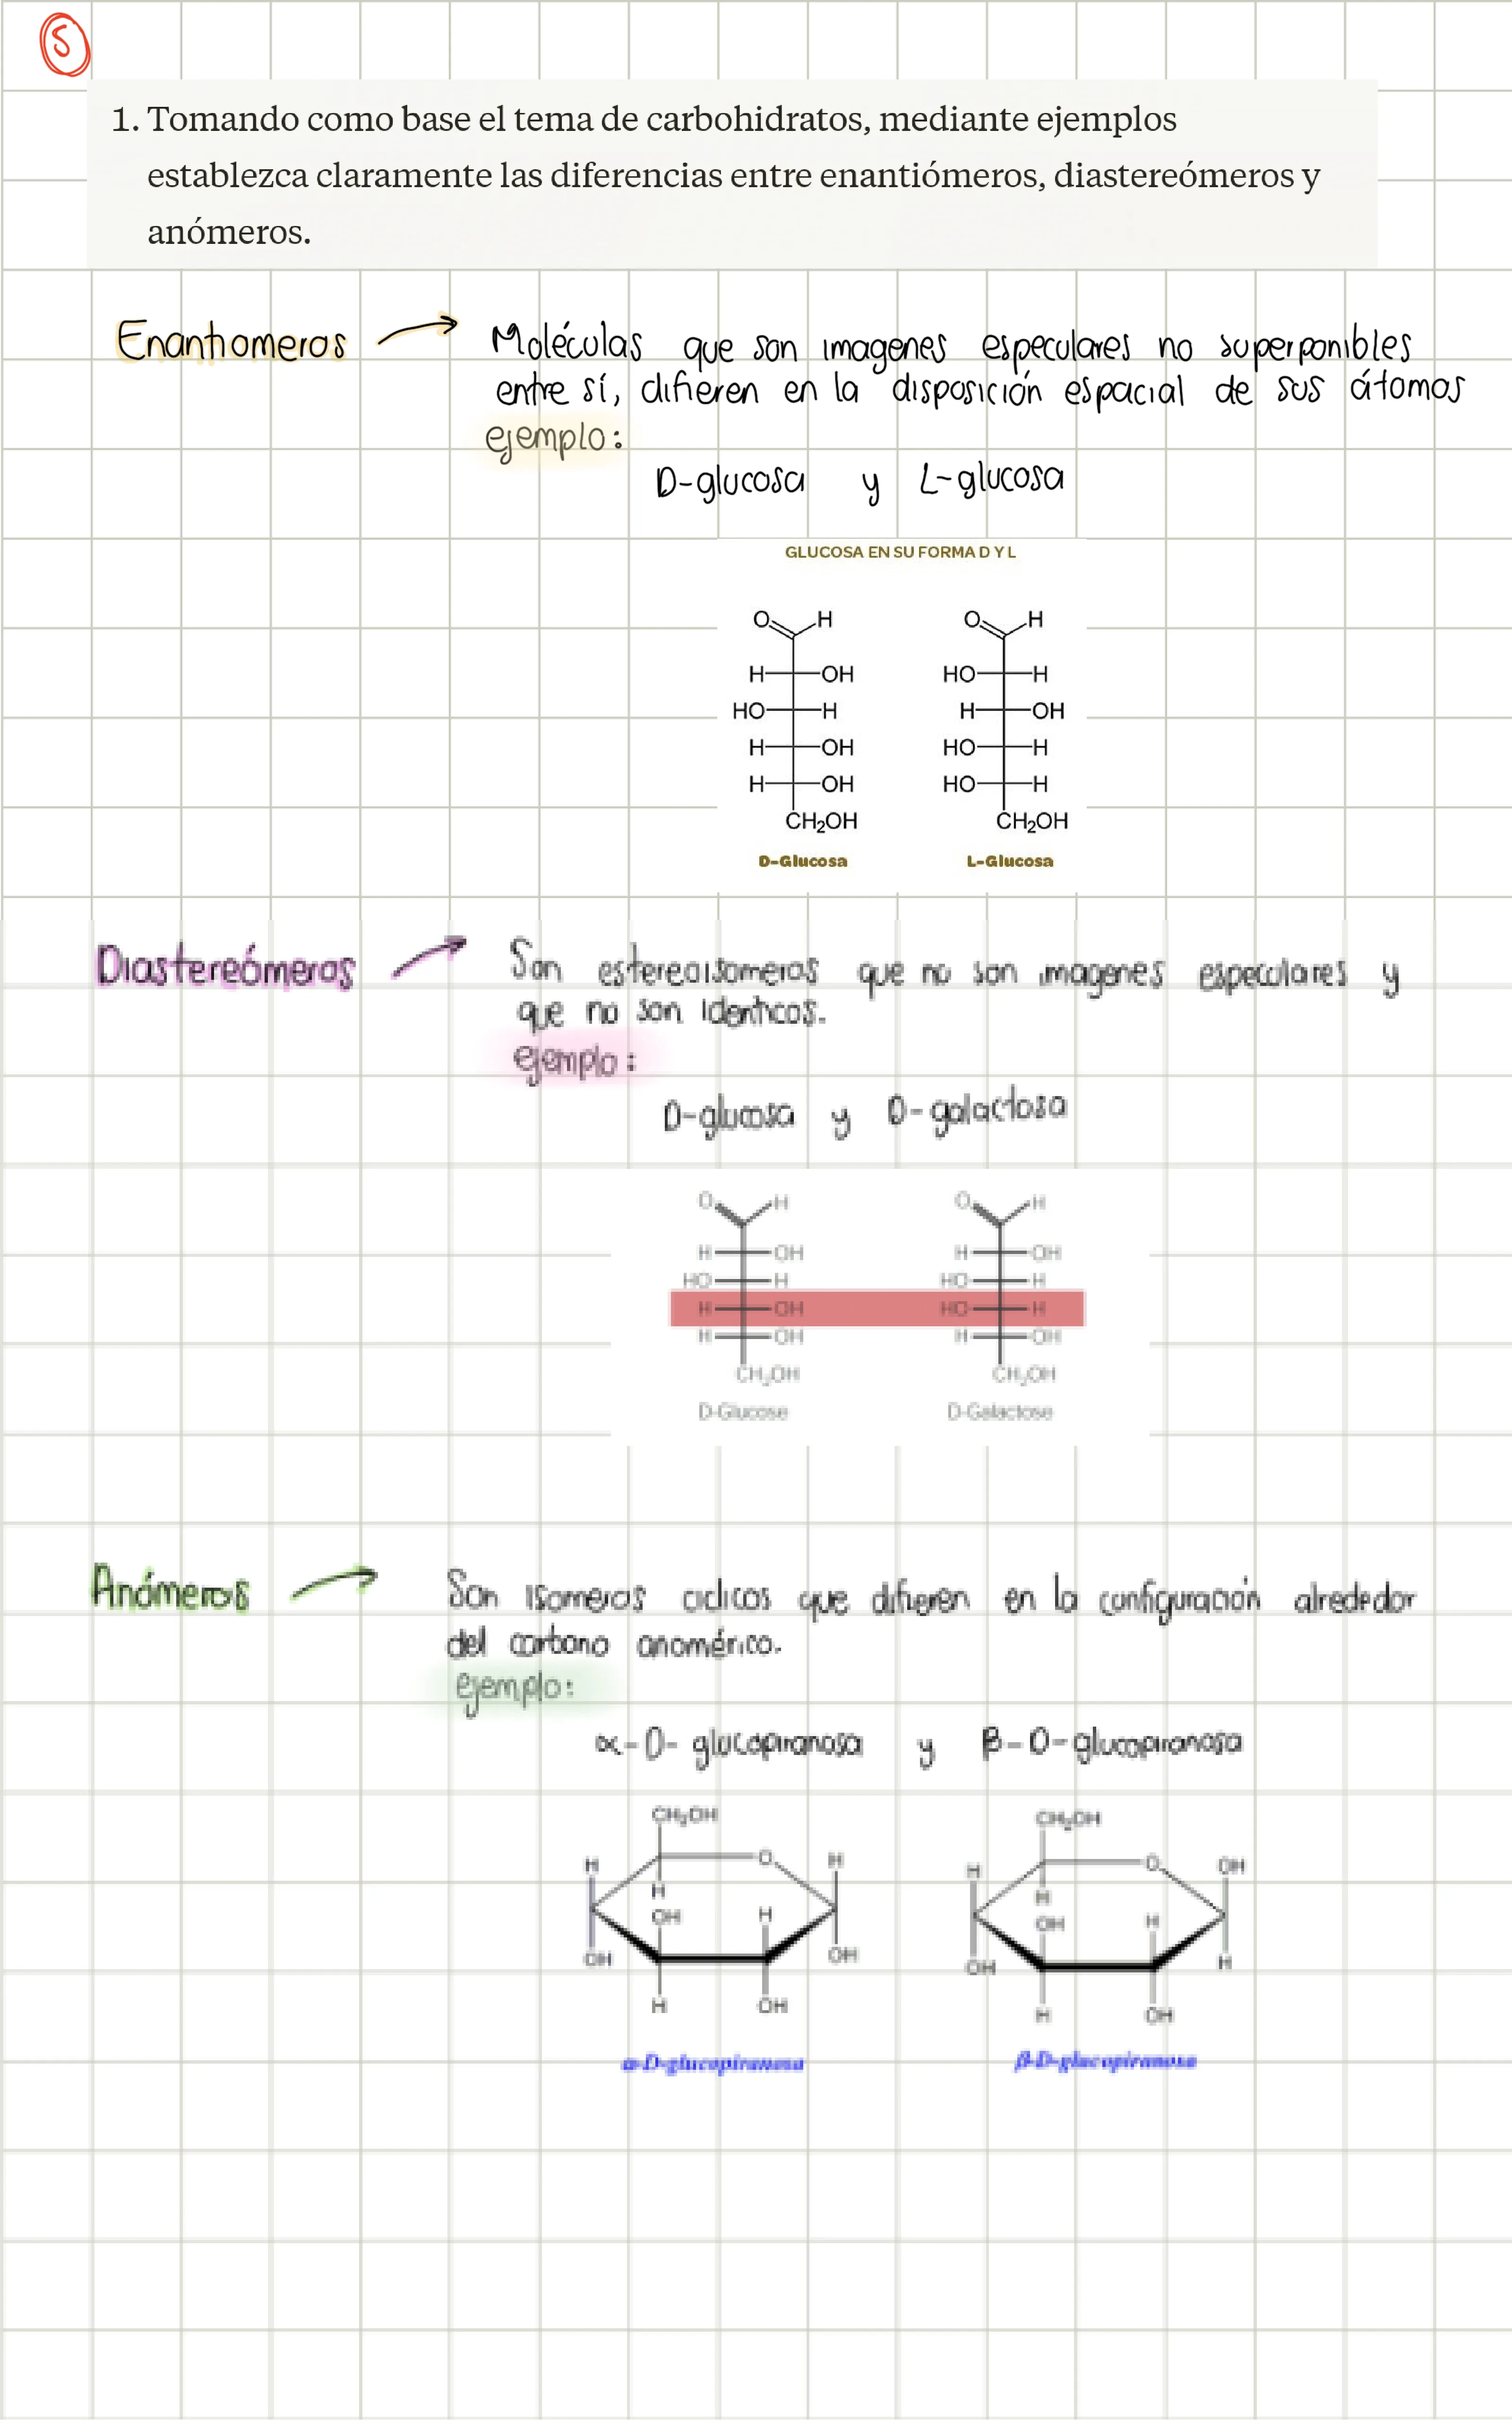 5
1. Tomando como base el tema de carbohidratos, mediante ejemplos
establezca claramente las diferencias entre enantiómeros, diastereómeros y
anómeros.
Enantiomeros → Moléculas que son imagenes especulares no superponibles
entre sí, difieren en la disposición espacial de sus átomos
ejemplo:
D-glucosa y L-glucosa
GLUCOSA EN SU FORMA D Y L
O H O H
H OH HO H
HO H H OH
H OH HO H
H OH HO H
CH₂OH CH₂OH
D-Glucosa L-Glucosa
Diastereómeros → Son estereoisomeros que no son imagenes especulares y
que no son identicos.
ejemplo:
D-glucosa y D-galactosa
O H O H
H OH H OH
HO H HO H
H OH HO H
H OH H OH
CH₂OH CH₂OH
D-Glucose D-Galactose
Anómeros → Son isomeros ciclicos que difieren en la configuración alrededor
del carbono anomérico.
ejemplo:
α-D-glucopiranosa y β-D-glucopiranosa
CH₂OH CH₂OH
H O H H O OH
H H
OH H OH H
OH OH OH H
H OH H OH
α-D-glucopiranosa β-D-glucopiranosa